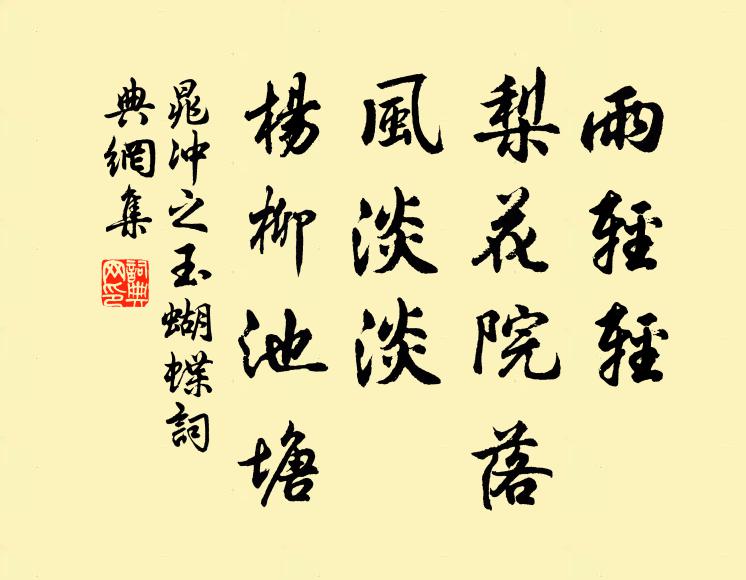 雨輕輕
梨花院落
風淡淡
楊柳池塘
晁沖之玉蝴蝶詞
典網集
詞典網印